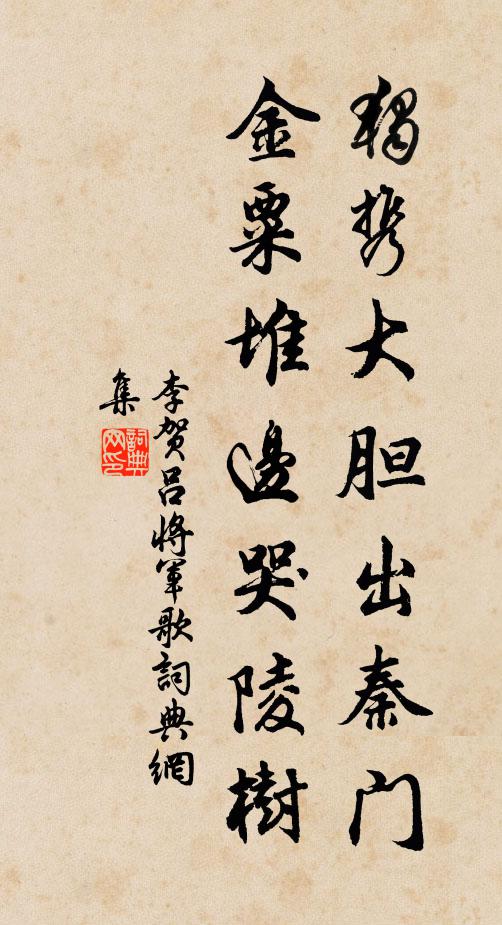 独携大胆出秦门
金粟堆邊哭陵樹
李贺吕将军歌詞典網
集
詞典網印